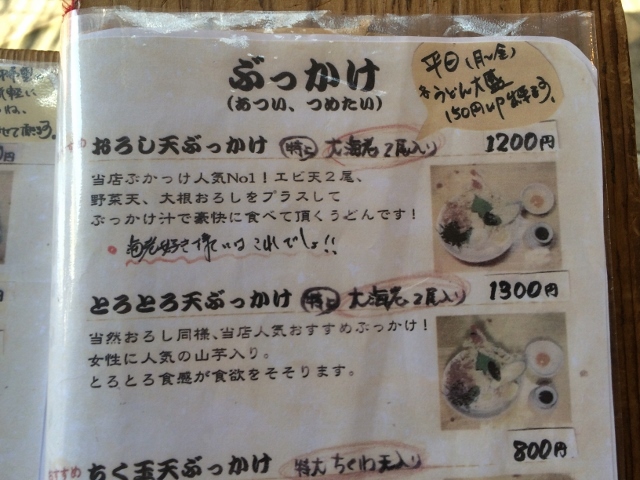 ぶっかけ
(あつい、つめたい)
平日(月〜金)
うどん大盛
150円UP
おろし天ぶっかけ 特上 大海老2尾入り 1200円
当店ぶかっけ人気No1！エビ天２尾、
野菜天、大根おろしをプラスして
ぶっかけ汁で豪快に食べて頂くうどんです！
海老好き様いは これでしょ!!
とろとろ天ぶっかけ 特上 大海老2尾入り 1300円
当然おろし同様、当店人気おすすめぶっかけ！
女性に人気の山芋入り。
とろとろ食感が食欲をそそります。
800円
おすすめ ちく玉天ぶっかけ 特大ちくわ天入り